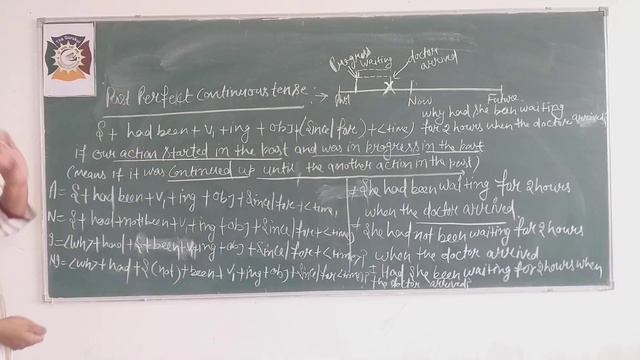 The Gurukul
Progress
waiting
doctor arrived
Past Perfect Continuous tense :→
Past
Now
Future
S + had been + V₁ + ing + obj + (Since/for) + <time>
why had she been waiting
for 2 hours when the doctor arrived
if our action started in the past and was in progress in the past
(means if it was continued up until the another action in the past)
A = S + had been + V₁ + ing + obj + Since/for + <time>
N = S + had + not + been + V₁ + ing + obj + Since/for + <time>
I = <wh> + had + S + been + V₁ + ing + obj + Since/for + <time>?
NI = <wh> + had + S (not) + been + V₁ + ing + obj + Since/for <time>?
+ She had been waiting for 2 hours
when the doctor arrived
+ She had not been waiting for 2 hours
when the doctor arrived
+ Had she been waiting for 2 hours when
the doctor arrived?